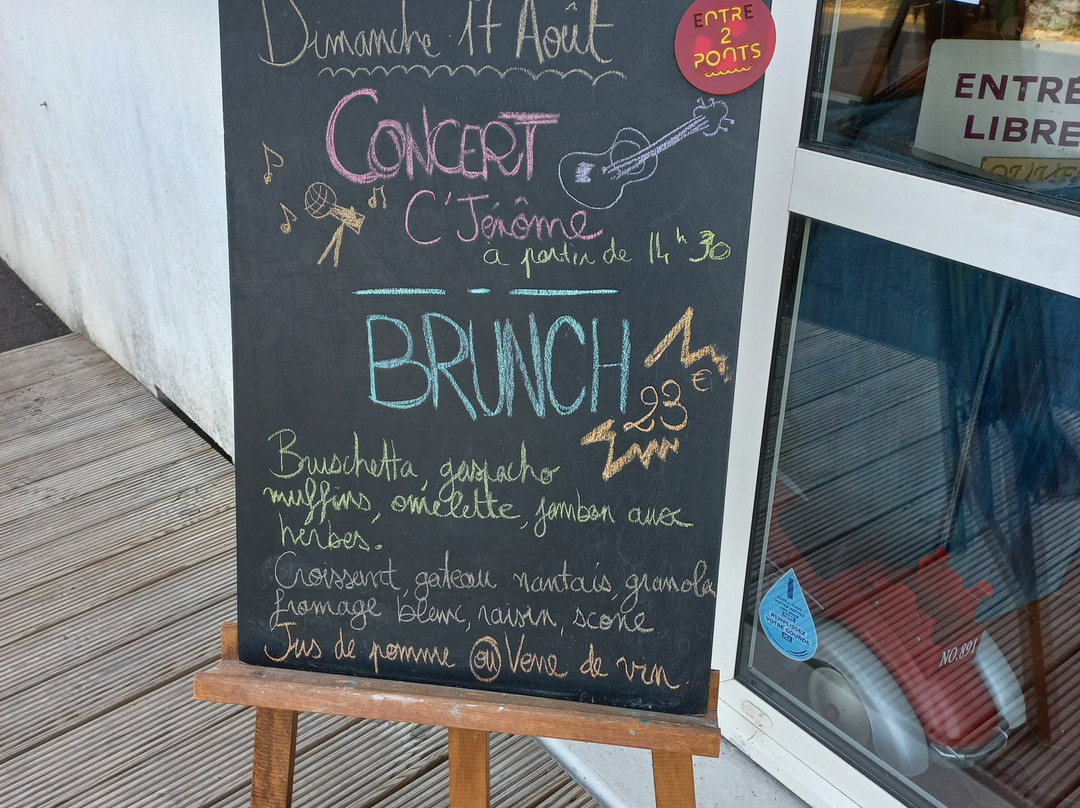 Dimanche 17 Août
ENTRE
2
PONTS
CONCERT
C'Jérôme
à partir de 14h30
BRUNCH
23€
Bruschetta, gaspacho
muffins, omelette, jambon aux
herbes.
Croissant, gateau nantais, granola
fromage blanc, raisin, scone
Jus de pomme ou Verre de vin
ENTRÉ
LIBRE
OUVE
REMPLISSEZ
VOTRE GOURDE
ICI
NO.891